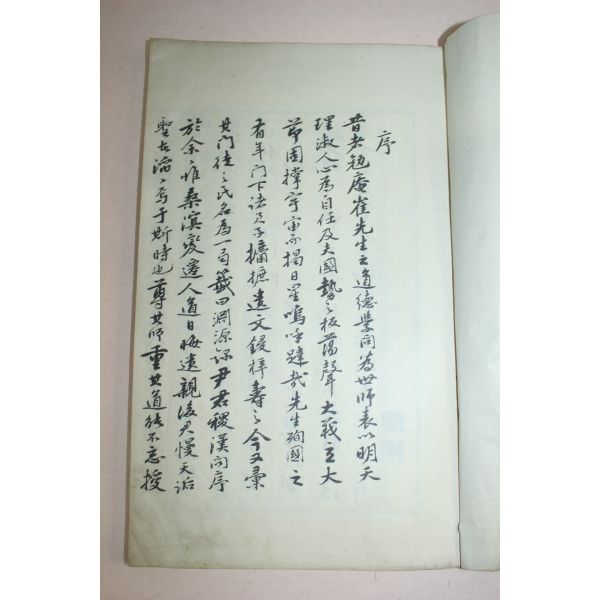 序
昔者勉庵崔先生之道德學問爲世師表以明天
理淑人心爲自任及夫國勢之板蕩聲大義立大
節固撑宇宙而揭日星嗚呼韙哉先生殉國之
有年門下諸君子摭遺文鋟梓壽之今又彙
其門徒之氏名爲一局籤曰淵源錄尹君稷漢問序
於余惟桑溟變遷人道日晦遺親後君慢天詬
聖者滔滔焉于斯時也尊其師重其道能不忘授